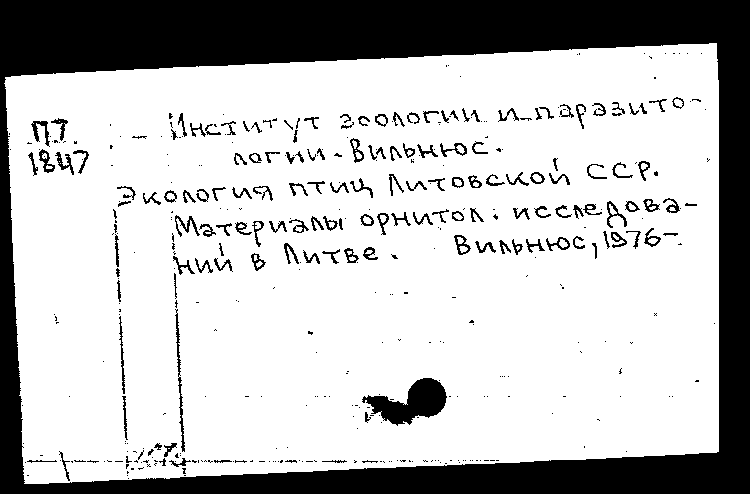 П7 — Институт зоологии и паразито-
1847 логии. Вильнюс.
Экология птиц Литовской ССР.
Материалы орнитол. исследова-
ний в Литве. Вильнюс, 1976-